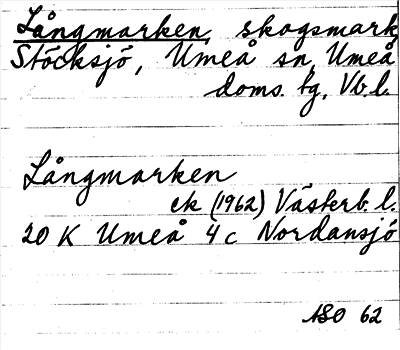 Långmarken, skogsmark
Stöcksjö, Umeå sn, Umeå
doms. tg, Vb.l.
Långmarken
ek (1962) Västerb. l.
20 K Umeå 4c Nordansjö
ASO 62